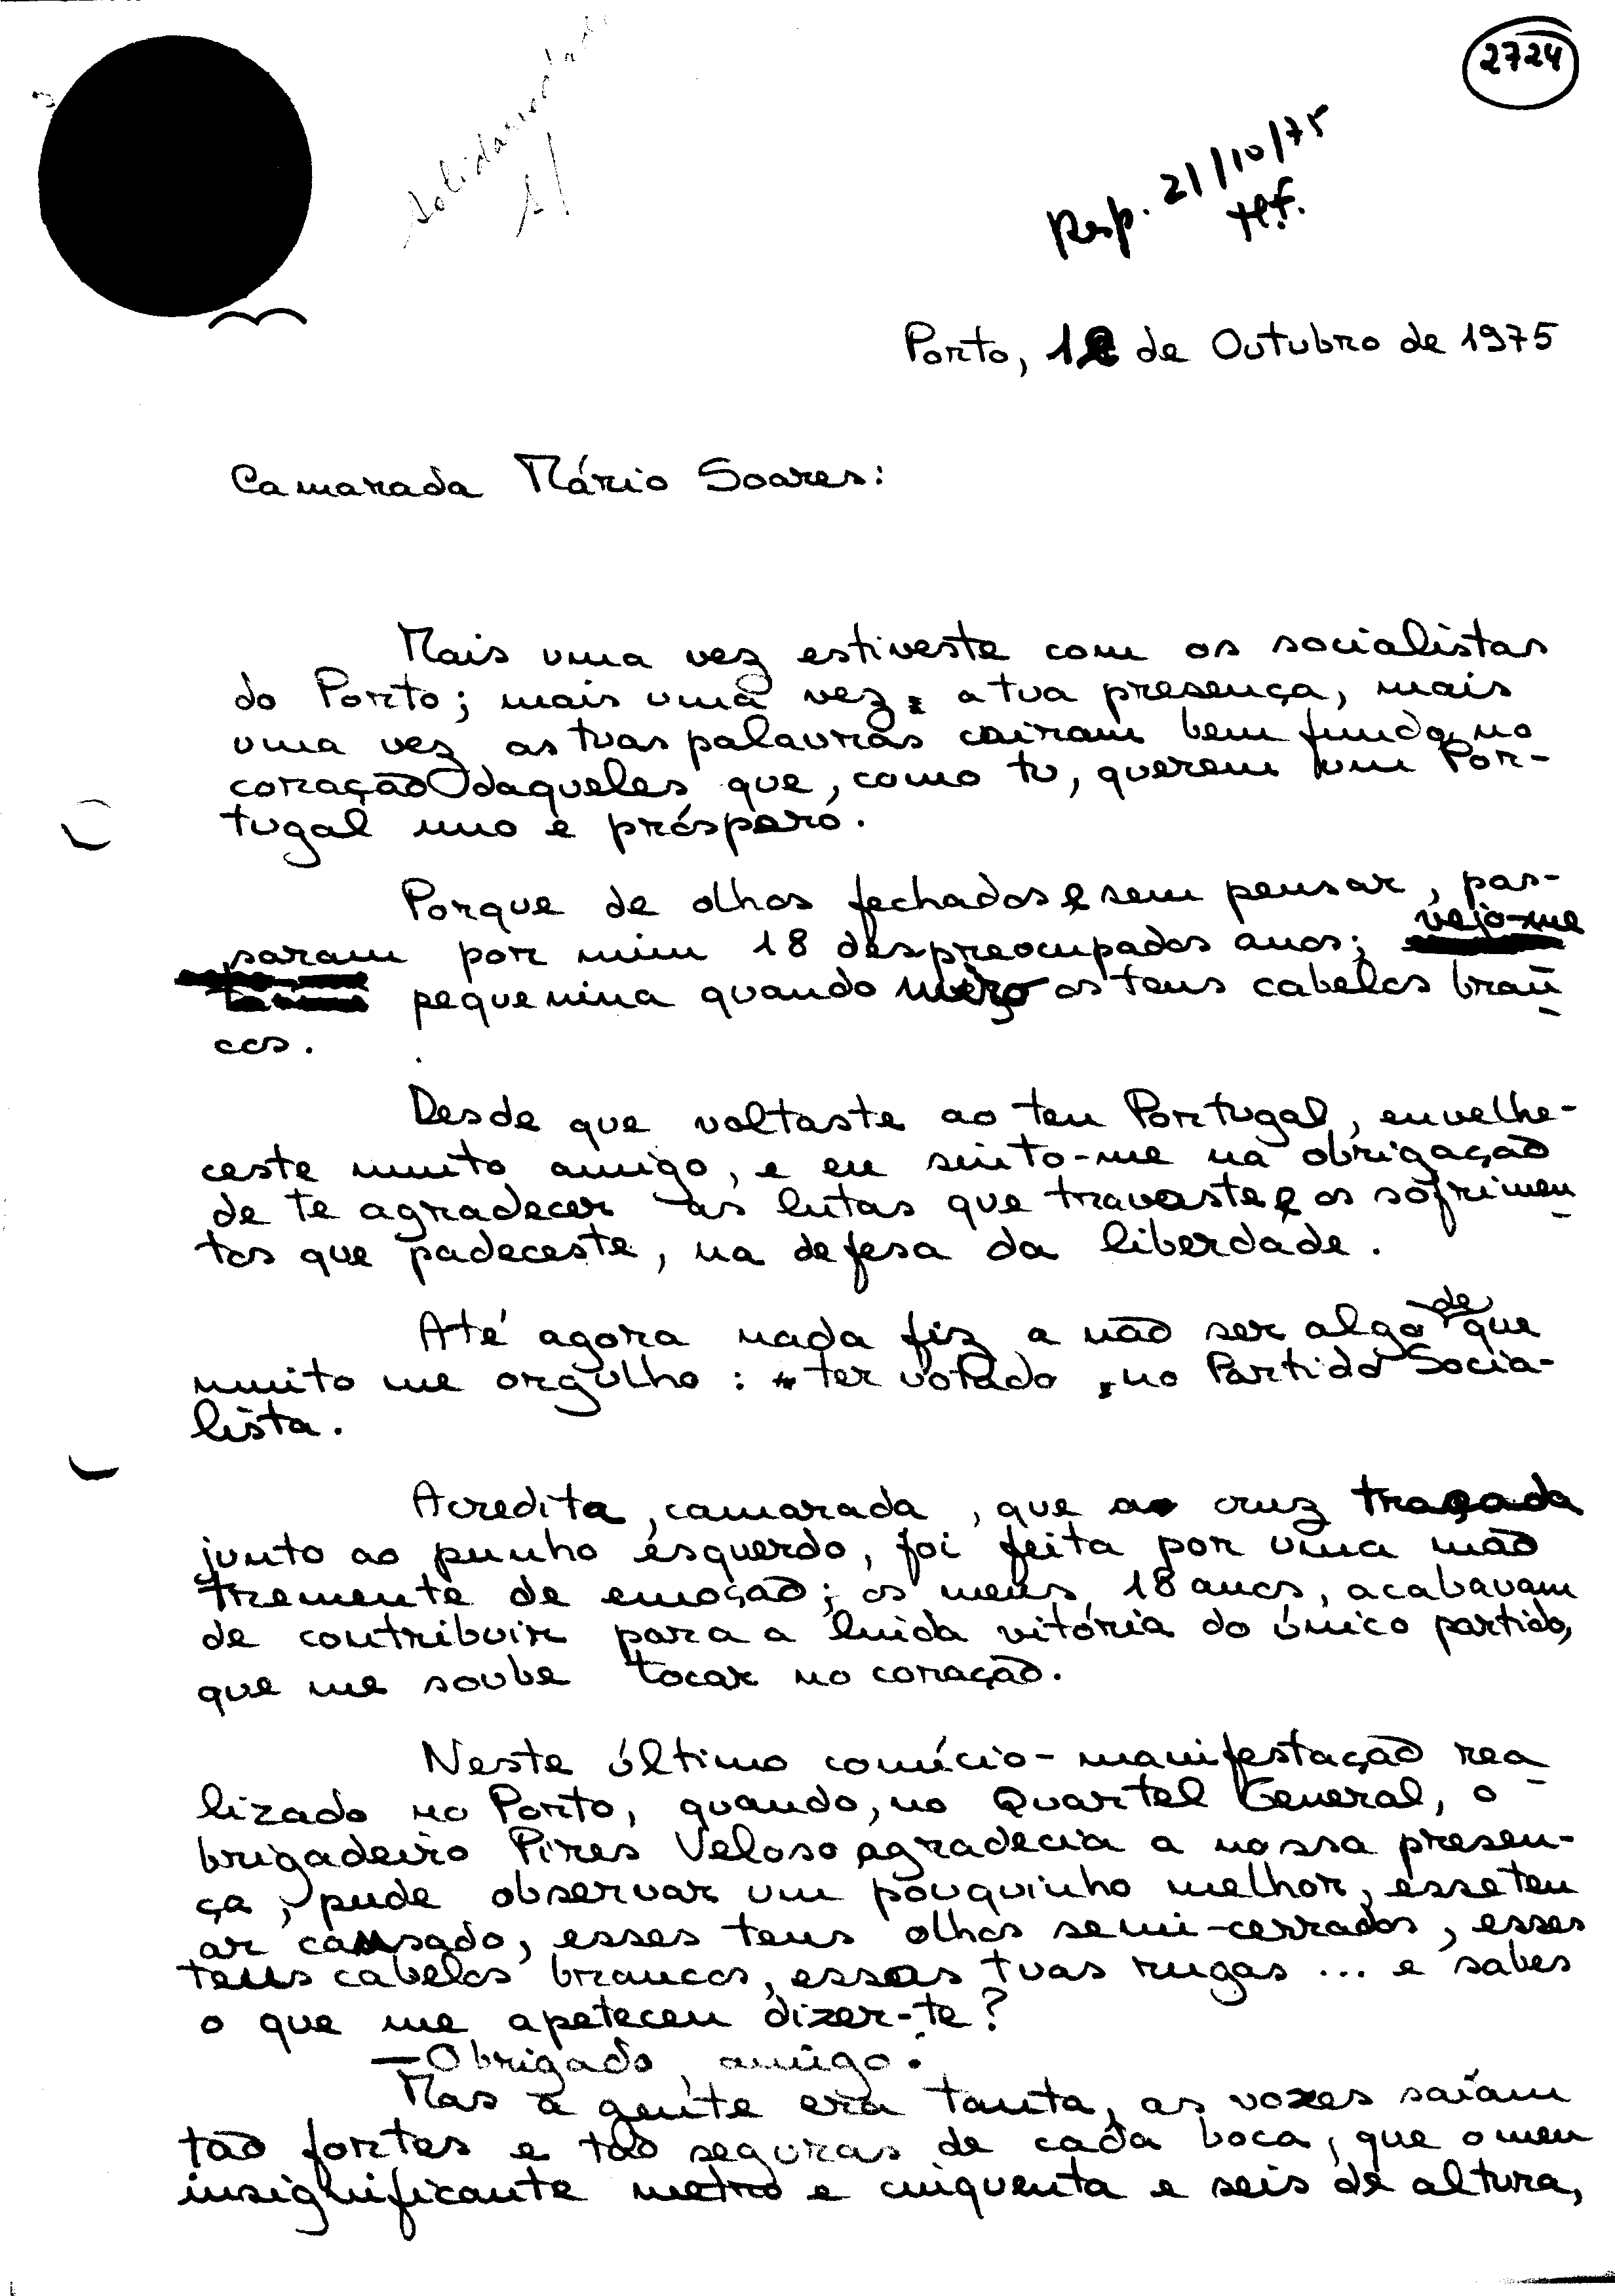 2724
Solidariedade
Resp. 21/10/75
tlf.
Porto, 12 de Outubro de 1975
Camarada Mário Soares:
Mais uma vez estiveste com os socialistas
do Porto; mais uma vez, a tua presença, mais
uma vez as tuas palavras caíram bem fundo no
coração daqueles que, como tu, querem um Por-
tugal uno e próspero.
Porque de olhos fechados e sem pensar, pas-
saram por mim 18 despreocupados anos; vejo-me
pequenina quando miro os teus cabelos bran
cos.
Desde que voltaste ao teu Portugal, envelhe-
ceste muito amigo, e eu sinto-me na obrigação
de te agradecer as lutas que travaste e os sofrimen
tos que padeceste, na defesa da liberdade.
Até agora nada fiz a não ser algo de que
muito me orgulho: ter votado, no Partido Socia-
lista.
Acredita, camarada, que a cruz traçada
junto ao punho esquerdo, foi feita por uma mão
tremente de emoção; os meus 18 anos, acabavam
de contribuir para a linda vitória do único partido,
que me soube tocar no coração.
Neste último comício-manifestação rea
lizado no Porto, quando, no Quartel General, o
brigadeiro Pires Veloso agradecia a nossa presen-
ça, pude observar um pouquinho melhor, esse teu
ar cansado, esses teus olhos semi-cerrados, esses
teus cabelos brancos, essas tuas rugas ... e sabes
o que me apeteceu dizer-te?
— Obrigado, amigo.
Mas a gente era tanta, as vozes saíam
tão fortes e tão seguras de cada boca, que o meu
insignificante metro e cinquenta e seis de altura,